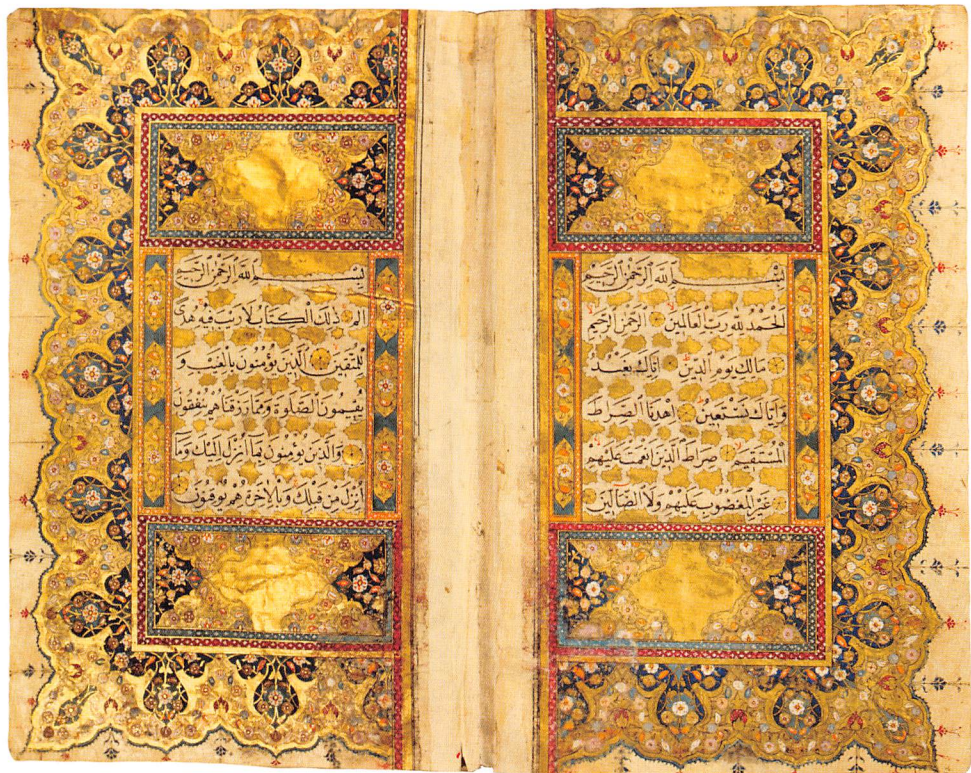 بِسْمِ اللَّهِ الرَّحْمَٰنِ الرَّحِيمِ
الْحَمْدُ لِلَّهِ رَبِّ الْعَالَمِينَ الرَّحْمَٰنِ الرَّحِيمِ
مَالِكِ يَوْمِ الدِّينِ إِيَّاكَ نَعْبُدُ
وَإِيَّاكَ نَسْتَعِينُ اهْدِنَا الصِّرَاطَ
الْمُسْتَقِيمَ صِرَاطَ الَّذِينَ أَنْعَمْتَ عَلَيْهِمْ
غَيْرِ الْمَغْضُوبِ عَلَيْهِمْ وَلَا الضَّالِّينَ
بِسْمِ اللَّهِ الرَّحْمَٰنِ الرَّحِيمِ
الم ذَٰلِكَ الْكِتَابُ لَا رَيْبَ فِيهِ هُدًى
لِلْمُتَّقِينَ الَّذِينَ يُؤْمِنُونَ بِالْغَيْبِ وَ
يُقِيمُونَ الصَّلَوٰةَ وَمِمَّا رَزَقْنَاهُمْ يُنْفِقُونَ
وَالَّذِينَ يُؤْمِنُونَ بِمَا أُنْزِلَ إِلَيْكَ وَمَا
أُنْزِلَ مِنْ قَبْلِكَ وَبِالْآخِرَةِ هُمْ يُوقِنُونَ